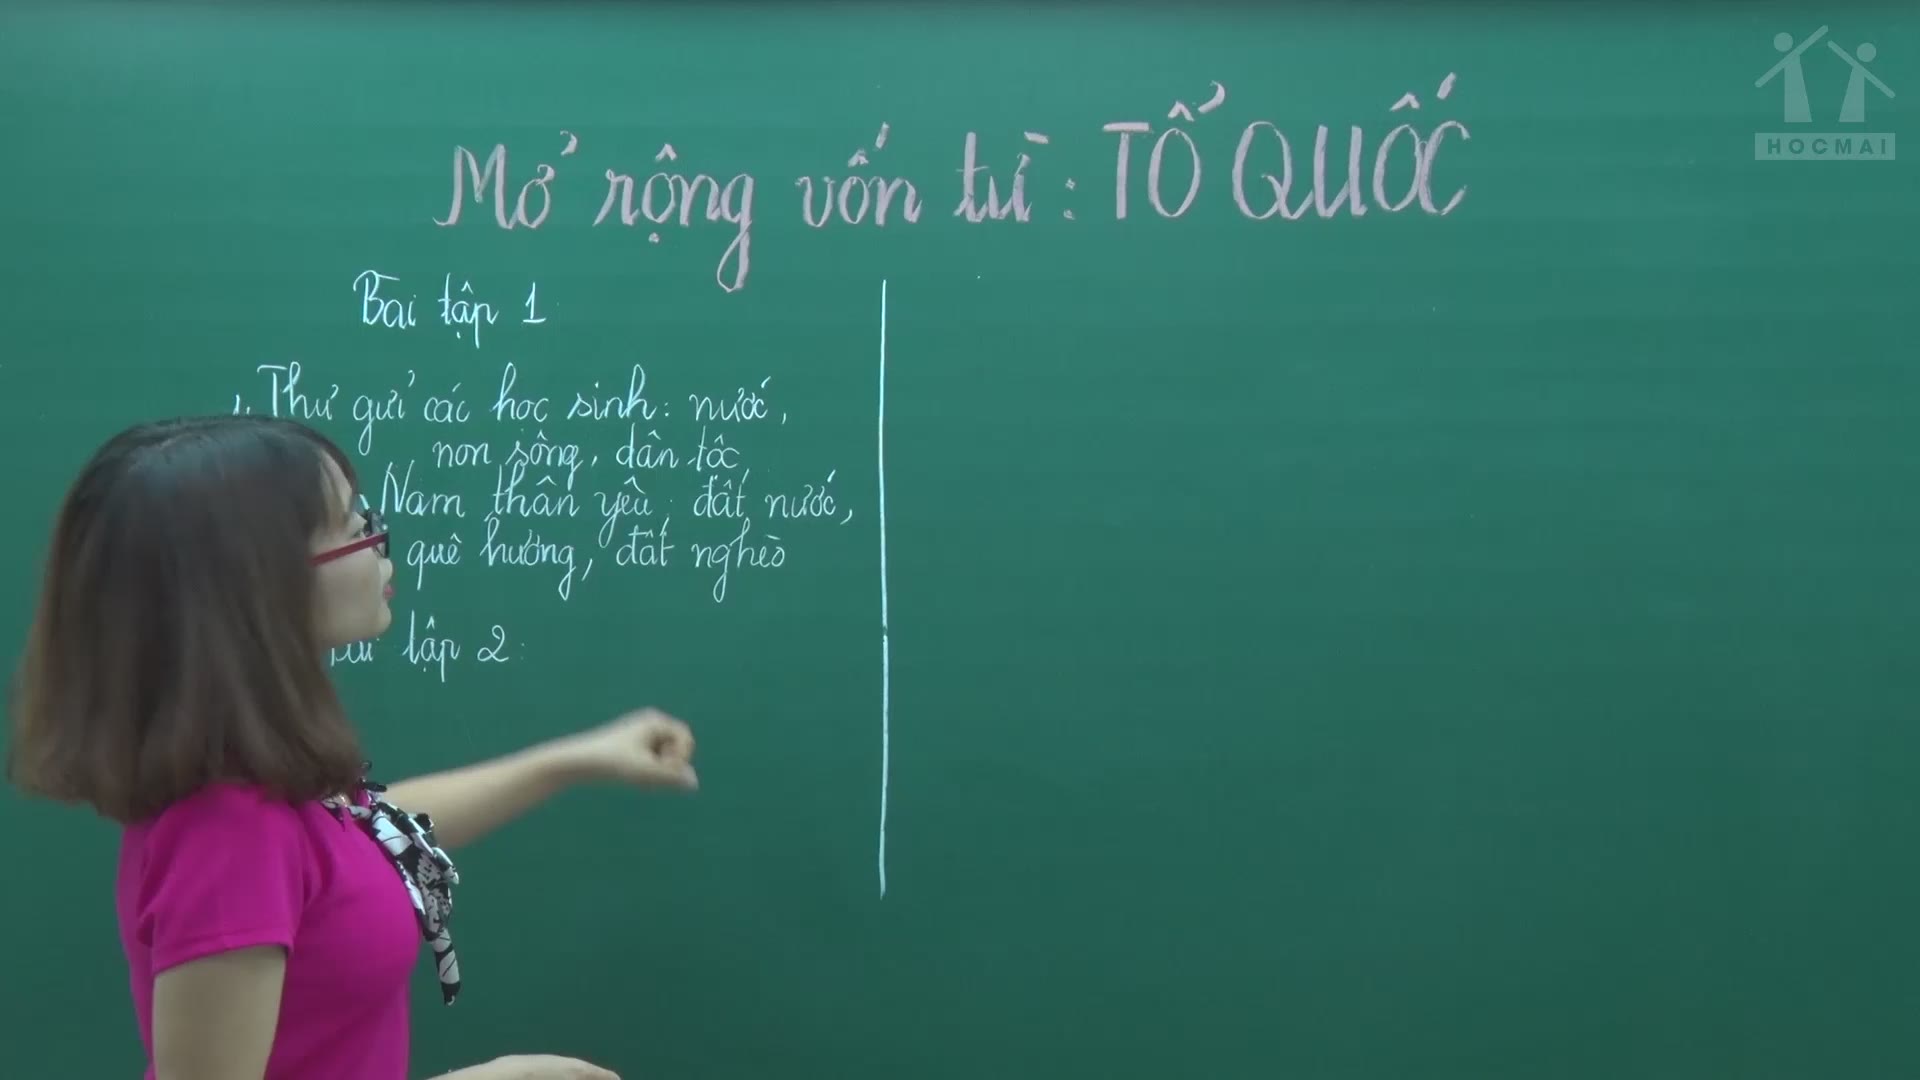 HOCMAI
Mở rộng vốn từ : TỔ QUỐC
Bài tập 1
Thư gửi các học sinh : nước,
non sông, dân tộc
Nam thân yêu : đất nước,
quê hương, đất nghèo
tập 2 :